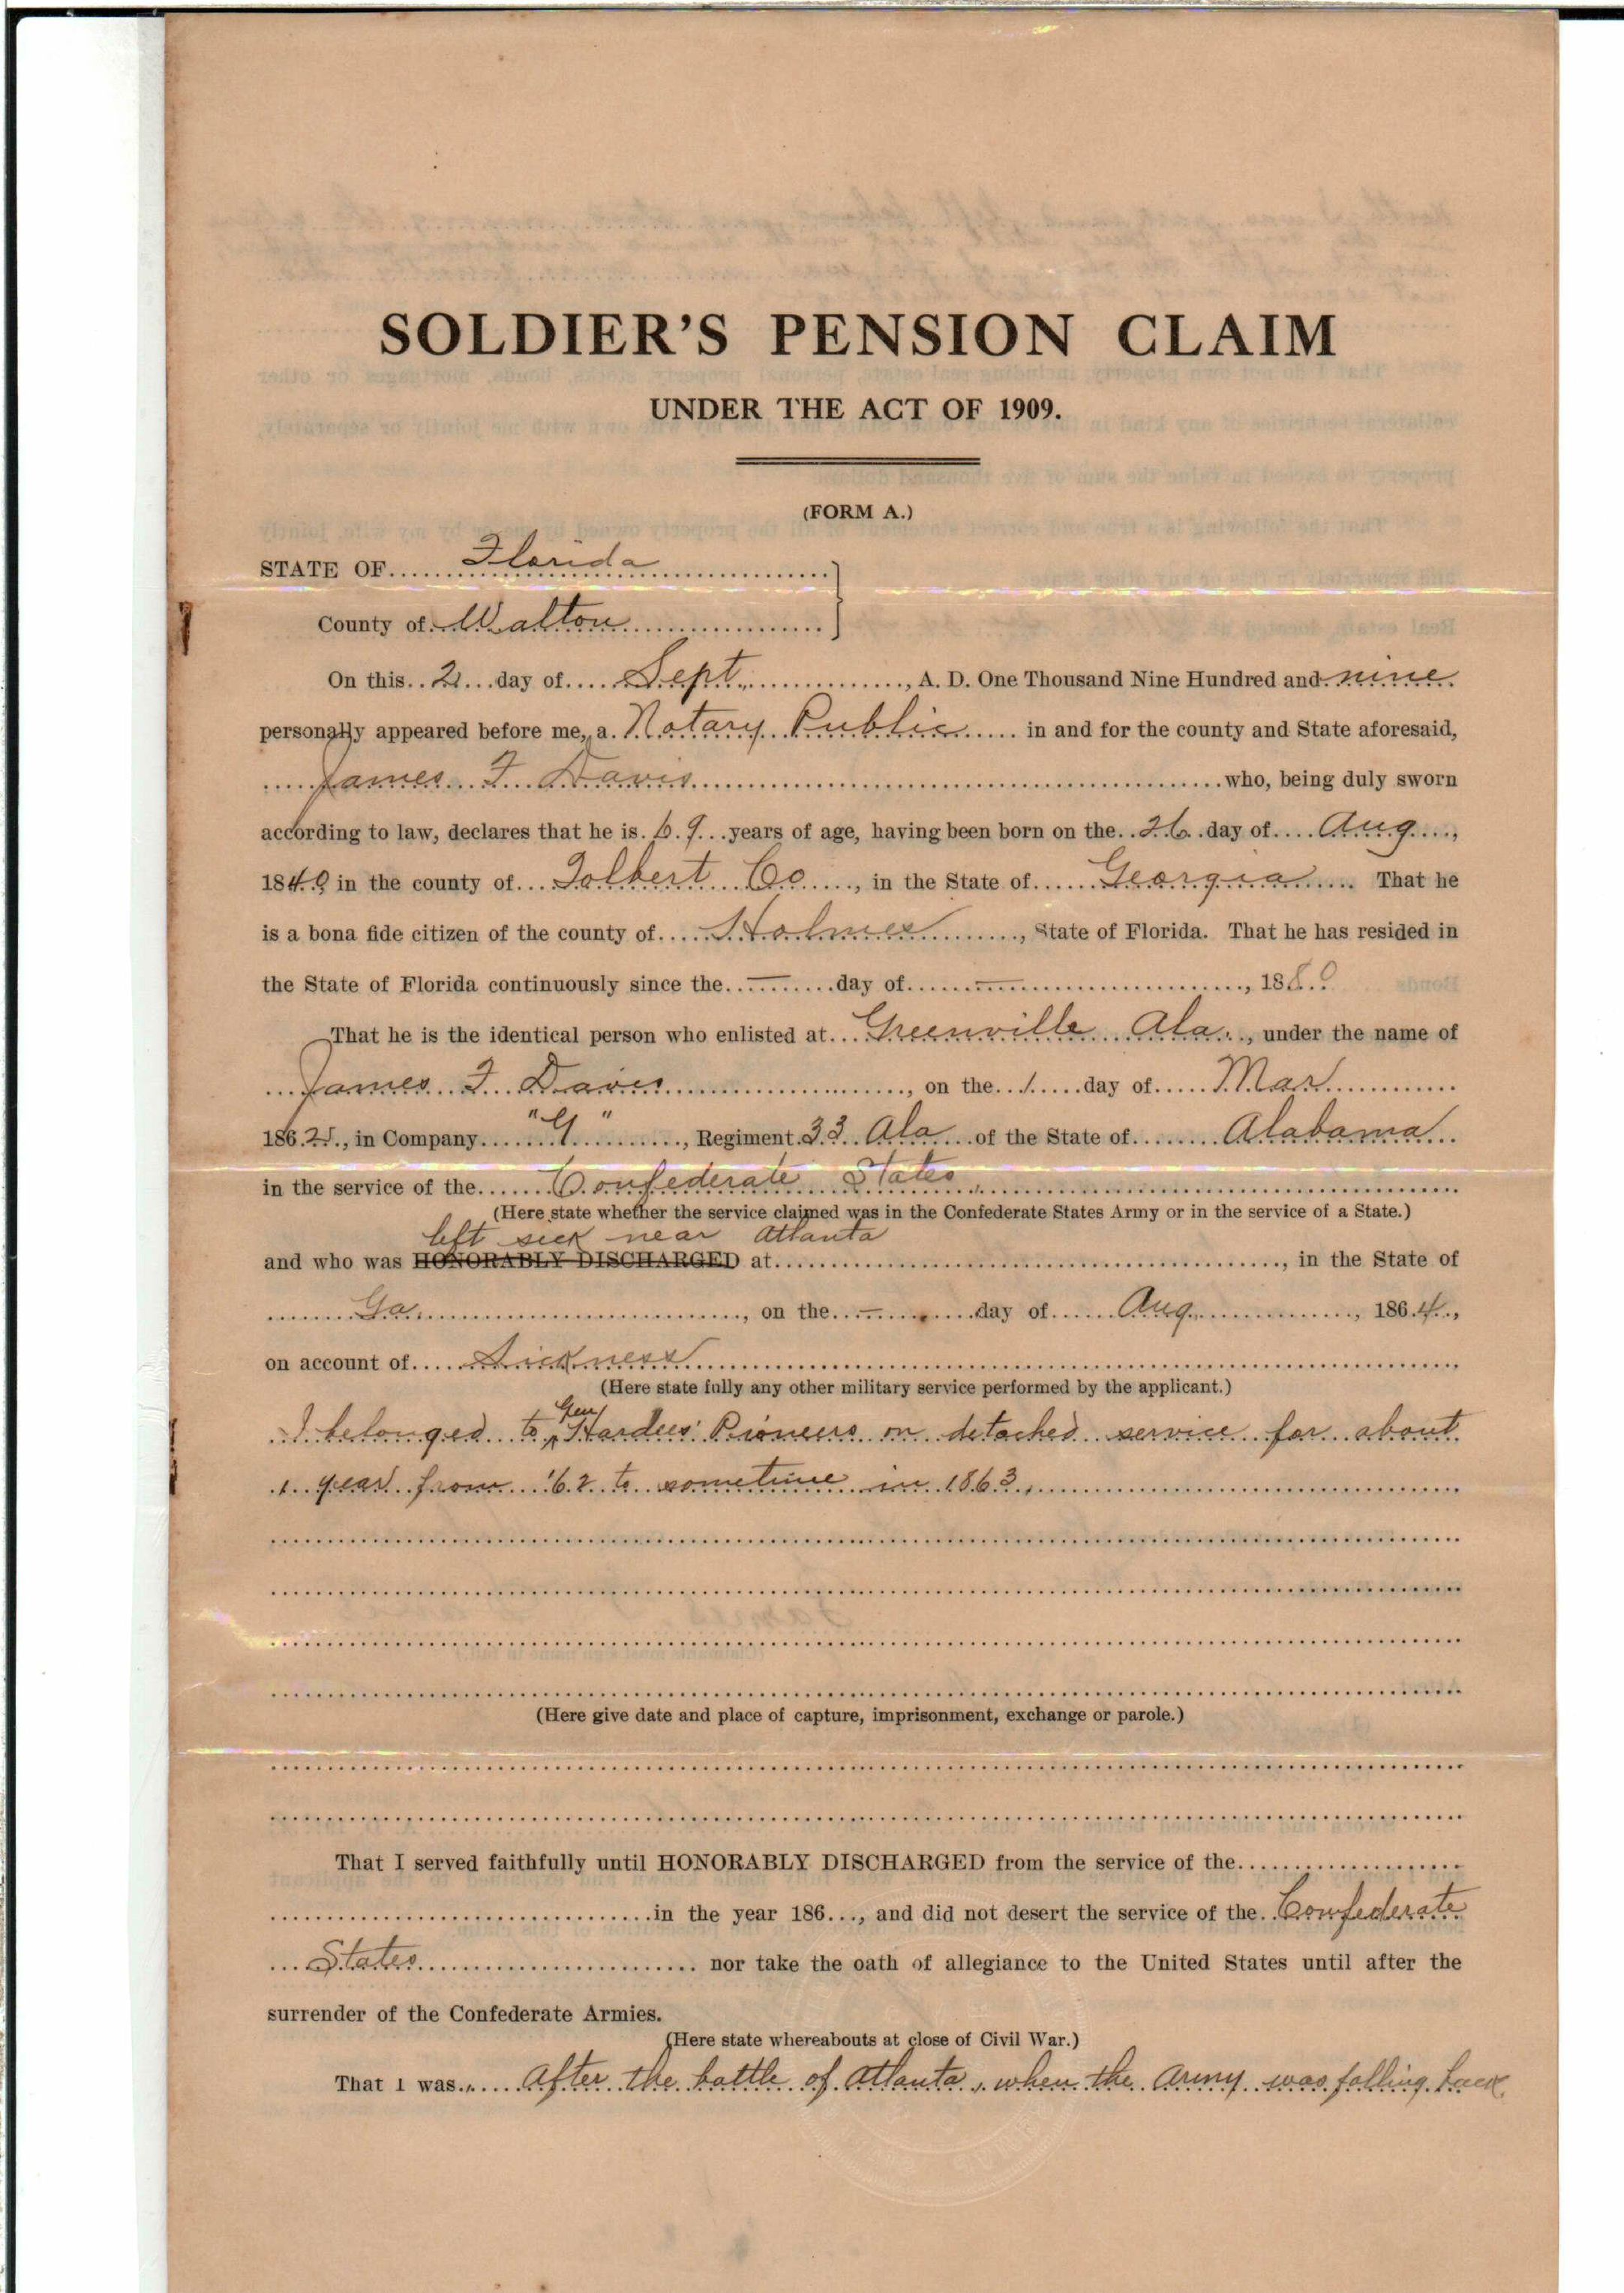 SOLDIER'S PENSION CLAIM
UNDER THE ACT OF 1909.
(FORM A.)
STATE OF Florida
County of Walton
On this 2 day of Sept, A. D. One Thousand Nine Hundred and nine
personally appeared before me, a Notary Public in and for the county and State aforesaid,
James F. Davis who, being duly sworn
according to law, declares that he is 69 years of age, having been born on the 26 day of Aug,
1840 in the county of Tolbert Co, in the State of Georgia That he
is a bona fide citizen of the county of Holmes, State of Florida. That he has resided in
the State of Florida continuously since the — day of —, 1880
That he is the identical person who enlisted at Greenville Ala., under the name of
James F. Davis, on the 1 day of Mar
1862, in Company "G", Regiment 33 Ala of the State of Alabama
in the service of the Confederate States
(Here state whether the service claimed was in the Confederate States Army or in the service of a State.)
left sick near Atlanta
and who was HONORABLY DISCHARGED at, in the State of
Ga., on the — day of Aug, 1864,
on account of Sickness
(Here state fully any other military service performed by the applicant.)
I belonged to Gen Hardees' Pioneers on detached service for about
1 year from '62 to sometime in 1863.
(Here give date and place of capture, imprisonment, exchange or parole.)
That I served faithfully until HONORABLY DISCHARGED from the service of the
in the year 186, and did not desert the service of the Confederate
States nor take the oath of allegiance to the United States until after the
surrender of the Confederate Armies.
(Here state whereabouts at close of Civil War.)
That I was After the battle of Atlanta, when the Army was falling back